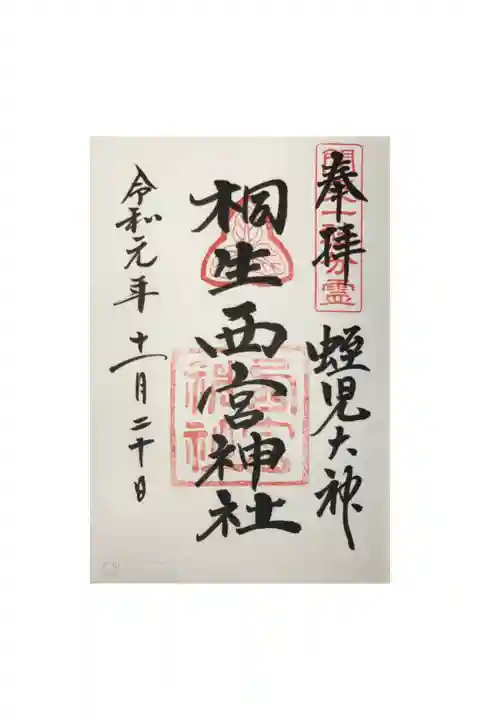 奉拝
蛭児大神
桐生西宮神社
令和元年十一月二十日